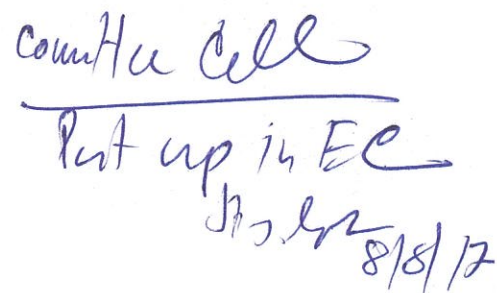 Committee Cell
Put up in EC
8/8/17